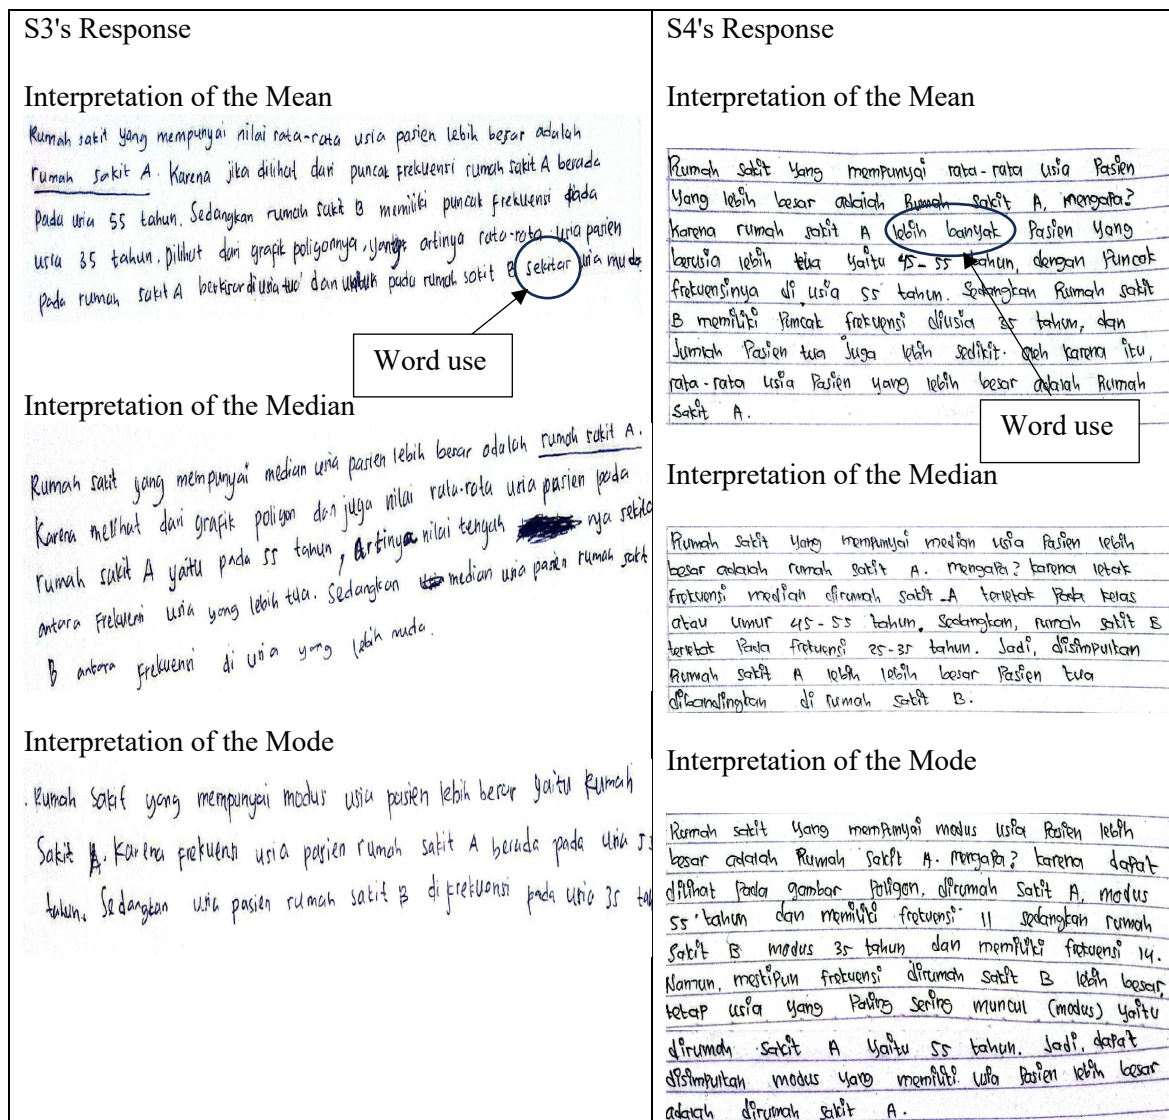 S3's Response
Interpretation of the Mean
Rumah sakit yang mempunyai nilai rata-rata usia pasien lebih besar adalah
rumah sakit A. Karena jika dilihat dari puncak frekuensi rumah sakit A berada
pada usia 55 tahun. Sedangkan rumah sakit B memiliki puncak frekuensi pada
usia 35 tahun. Dilihat dari grafik poligonnya, yang artinya rata-rata usia pasien
pada rumah sakit A berkisar diusia tua dan untuk pada rumah sakit B sekitar usia muda
Word use
Interpretation of the Median
Rumah sakit yang mempunyai median usia pasien lebih besar adalah rumah sakit A.
Karena melihat dari grafik poligon dan juga nilai rata-rata usia pasien pada
rumah sakit A yaitu pada 55 tahun, Artinya nilai tengah nya sekita
antara frekuensi usia yang lebih tua. Sedangkan median usia pasien rumah sakit
B antara frekuensi di usia yang lebih muda.
Interpretation of the Mode
. Rumah Sakit yang mempunyai modus usia pasien lebih besar yaitu Rumah
Sakit A. Karena frekuensi usia pasien rumah sakit A berada pada usia 55
tahun. Sedangkan usia pasien rumah sakit B di frekuensi pada usia 35 tah
S4's Response
Interpretation of the Mean
Rumah sakit yang mempunyai rata-rata usia Pasien
Yang lebih besar adalah Rumah sakit A, mengapa?
Karena rumah sakit A lebih banyak Pasien yang
berusia lebih tua yaitu 45-55 tahun, dengan Puncak
frekuensinya di usia 55 tahun. Sedangkan Rumah sakit
B memiliki Puncak frekuensi diusia 35 tahun, dan
Jumlah Pasien tua Juga lebih sedikit. Oleh karena itu,
rata-rata usia Pasien yang lebih besar adalah Rumah
Sakit A.
Word use
Interpretation of the Median
Rumah Sakit yang mempunyai median usia Pasien lebih
besar adalah rumah sakit A. mengapa? karena letak
Frekuensi median dirumah sakit A terletak Pada kelas
atau umur 45-55 tahun. Sedangkan, rumah sakit B
terletak Pada frekuensi 25-35 tahun. Jadi, disimpulkan
Rumah sakit A lebih lebih besar Pasien tua
dibandingkan di rumah sakit B.
Interpretation of the Mode
Rumah sakit yang mempunyai modus usia Pasien lebih
besar adalah Rumah sakit A. mengapa? karena dapat
dilihat Pada gambar Poligon, dirumah Sakit A, modus
55 tahun dan memiliki frekuensi 11 sedangkan rumah
Sakit B modus 35 tahun dan memiliki frekuensi 14.
Namun, meskipun frekuensi dirumah sakit B lebih besar,
tetap usia yang Paling sering muncul (modus) yaitu
dirumah sakit A yaitu 55 tahun. Jadi, dapat
disimpulkan modus yang memiliki usia Pasien lebih besar
adalah dirumah sakit A.